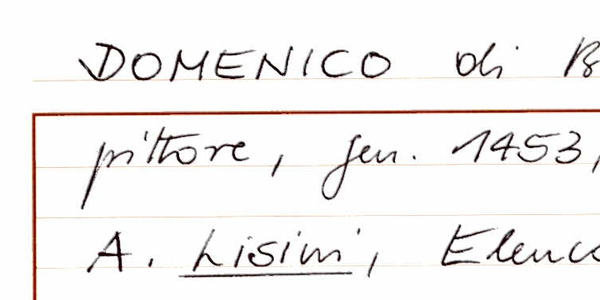 DOMENICO di B
pittore, gen. 1453,
A. Lisini, Elenco